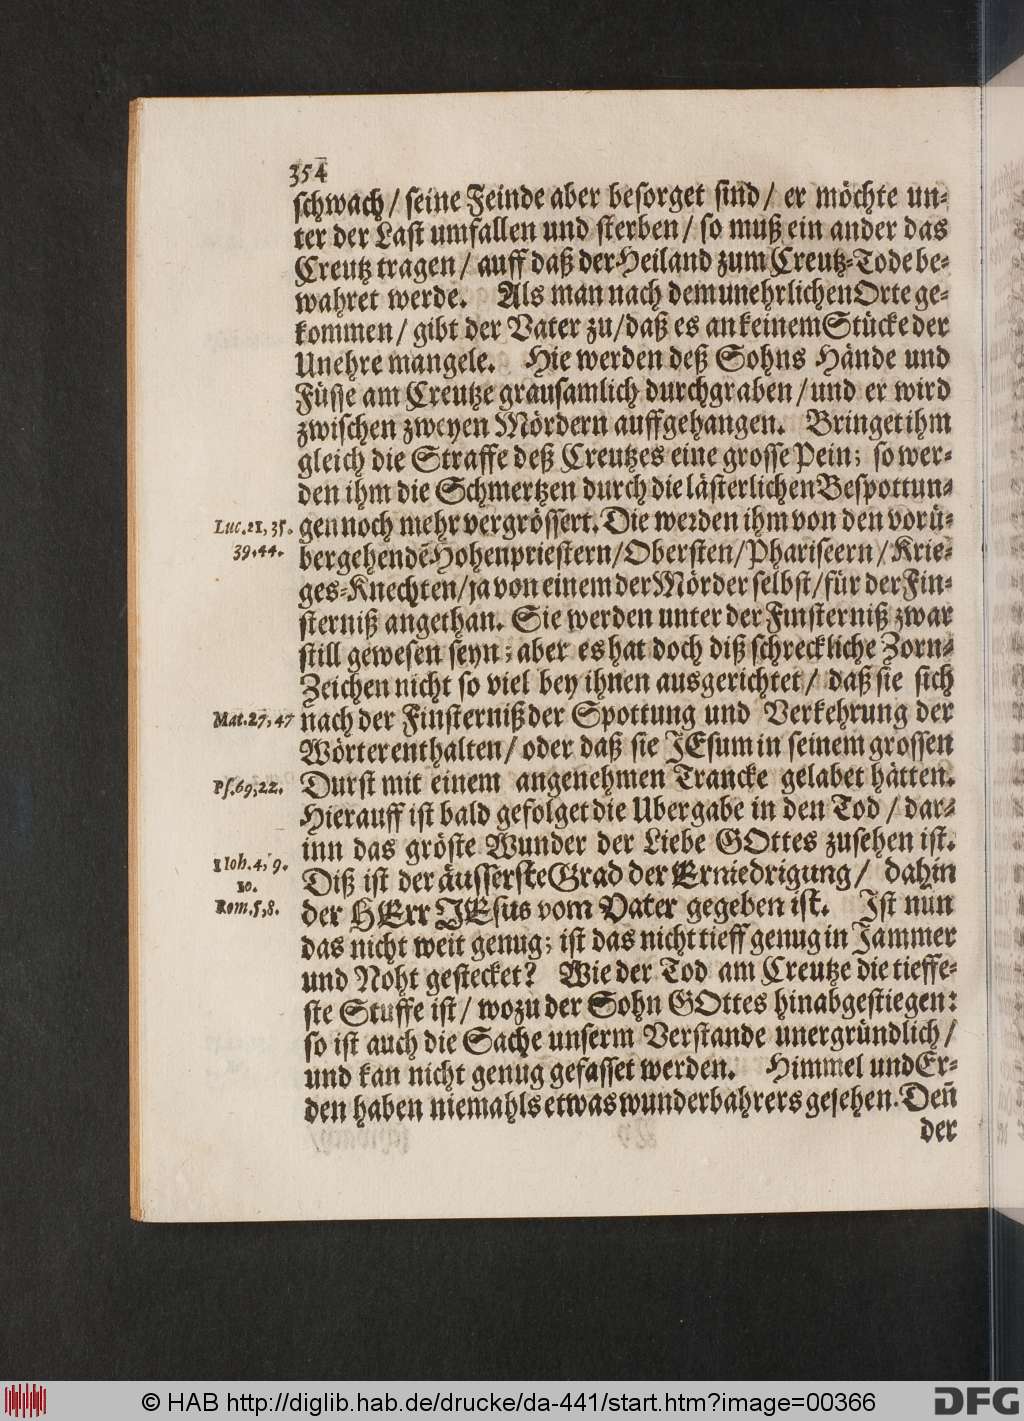 354
schwach / seine Feinde aber besorget sind / er möchte un-
ter der Last umfallen und sterben / so muß ein ander das
Creutz tragen / auff daß der Heiland zum Creutz-Tode be-
wahret werde. Als man nach dem unehrlichen Orte ge-
kommen / gibt der Vater zu / daß es an keinem Stücke der
Unehre mangele. Hie werden deß Sohns Hände und
Füsse am Creutze grausamlich durchgraben / und er wird
zwischen zweyen Mördern auffgehangen. Bringet ihm
gleich die Straffe deß Creutzes eine grosse Pein; so wer-
den ihm die Schmertzen durch die lästerlichen Bespottun-
Luc. 21, 35. gen noch mehr vergrössert. Die werden ihm von den vorü-
39. 44. bergehendē Hohenpriestern / Obersten / Phariseern / Krie-
ges-Knechten / ja von einem der Mörder selbst / für der Fin-
sterniß angethan. Sie werden unter der Finsterniß zwar
still gewesen seyn; aber es hat doch diß schreckliche Zorn-
Zeichen nicht so viel bey ihnen ausgerichtet / daß sie sich
Mat. 27, 47 nach der Finsterniß der Spottung und Verkehrung der
Wörter enthalten / oder daß sie JEsum in seinem grossen
Ps. 69, 22. Durst mit einem angenehmen Trancke gelabet hätten.
Hierauff ist bald gefolget die Ubergabe in den Tod / dar-
inn das gröste Wunder der Liebe GOttes zusehen ist.
1 Ioh. 4, 9. Diß ist der äusserste Grad der Erniedrigung / dahin
10.
Rom. 5, 8. der HErr JEsus vom Vater gegeben ist. Ist nun
das nicht weit genug; ist das nicht tieff genug in Jammer
und Noht gestecket? Wie der Tod am Creutze die tieffe-
ste Stuffe ist / wozu der Sohn GOttes hinabgestiegen:
so ist auch die Sache unserm Verstande unergründlich /
und kan nicht genug gefasset werden. Himmel und Er-
den haben niemahls etwas wunderbahrers gesehen. Deñ
der
© HAB http://diglib.hab.de/drucke/da-441/start.htm?image=00366
DFG